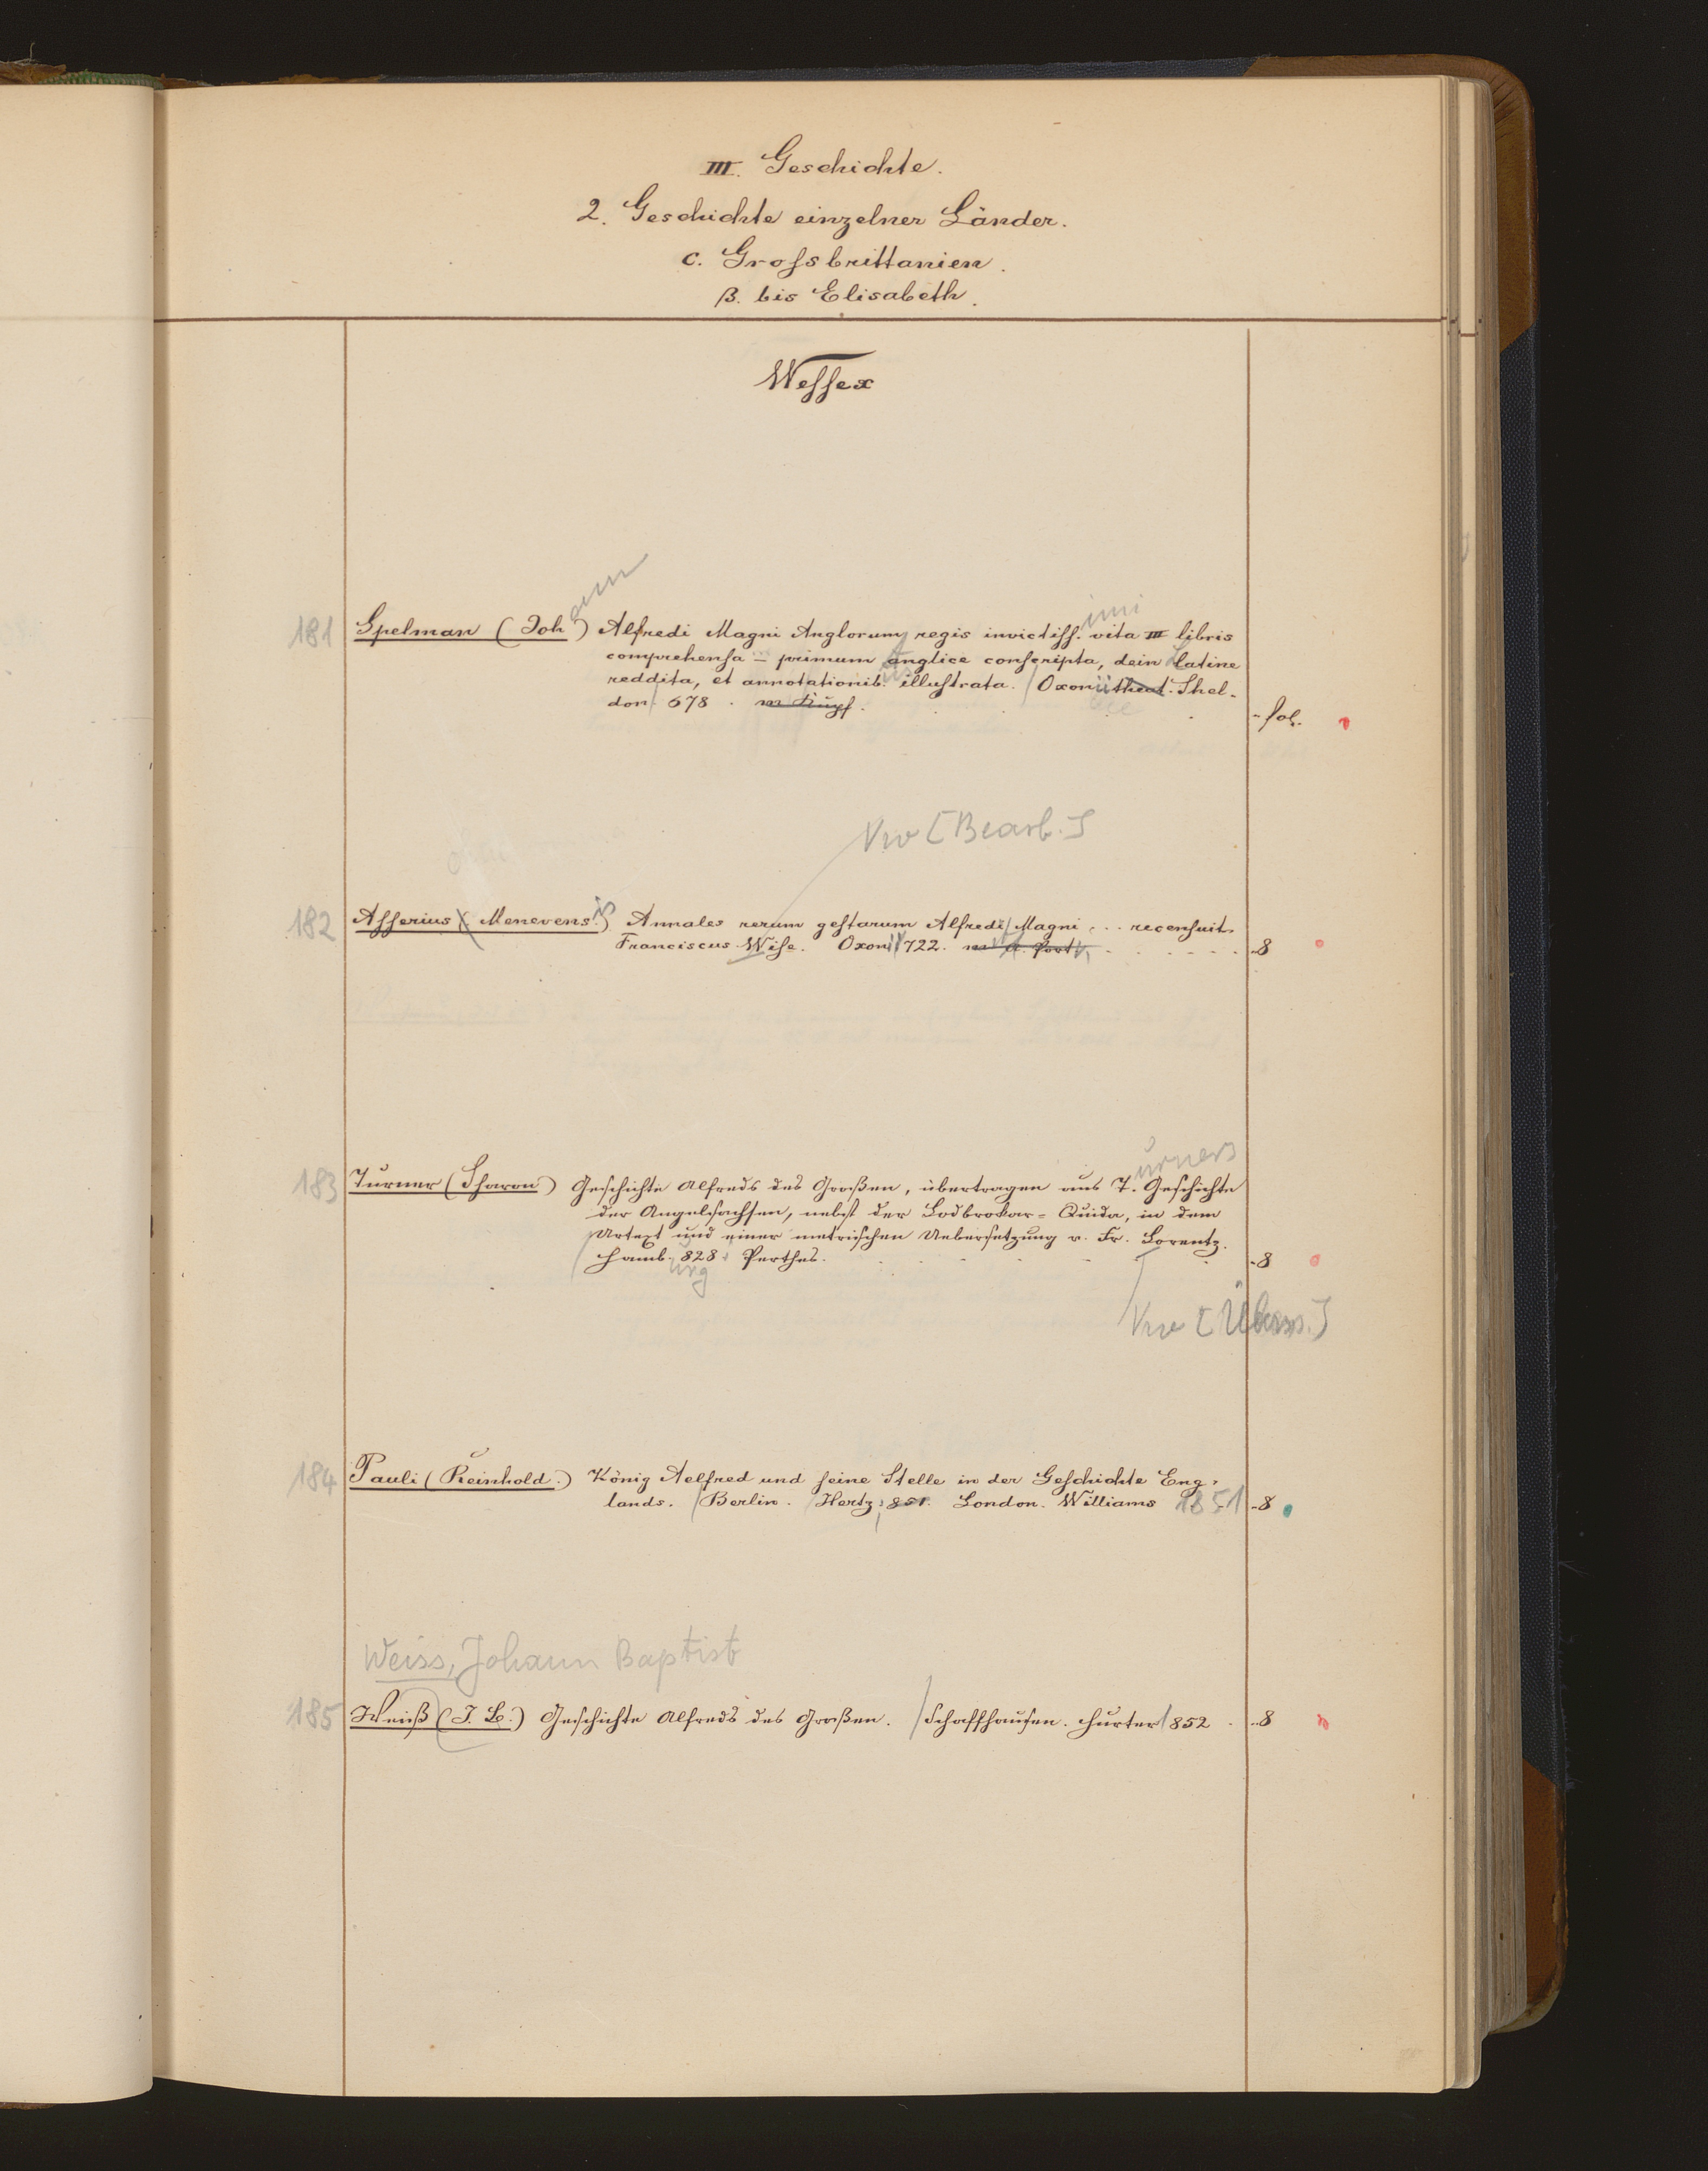 III. Geschichte.
2. Geschichte einzelner Länder.
c. Grossbrittanien.
β. bis Elisabeth.
Wessex
ann
imi
181 Spelman (Joh.) Alfredi Magni Anglorum regis invictiss. vita III libris
comprehensa - primum anglice conscripta, dein Latine
reddita, et annotationib. illustrata. Oxonii theat. Shel-
don. 678. m Kupf. fol.
Vw [Bearb.]
182 Asserius (Menevensis) Annales rerum gestarum Alfredi Magni ... recensuit
Franciscus Wise. Oxonii 722. m a. Port. 8
urners
183 Turner (Sharon) Geschichte Alfreds des Großen, übertragen aus T. Geschichte
der Angelsachsen, nebst der Lodbrokar-Quida, in dem
Urtext und einer metrischen Uebersetzung v. Fr. Lorentz.
Hamb. 828. Perthes. 8
urg
Vw [Übers.]
184 Pauli (Reinhold.) König Aelfred und seine Stelle in der Geschichte Eng-
lands. Berlin. Hertz, 851. London. Williams 1851 8
Weiss, Johann Baptist
185 Weiß (J. B.) Geschichte Alfreds des Großen. Schaffhausen. Hurter 852 8